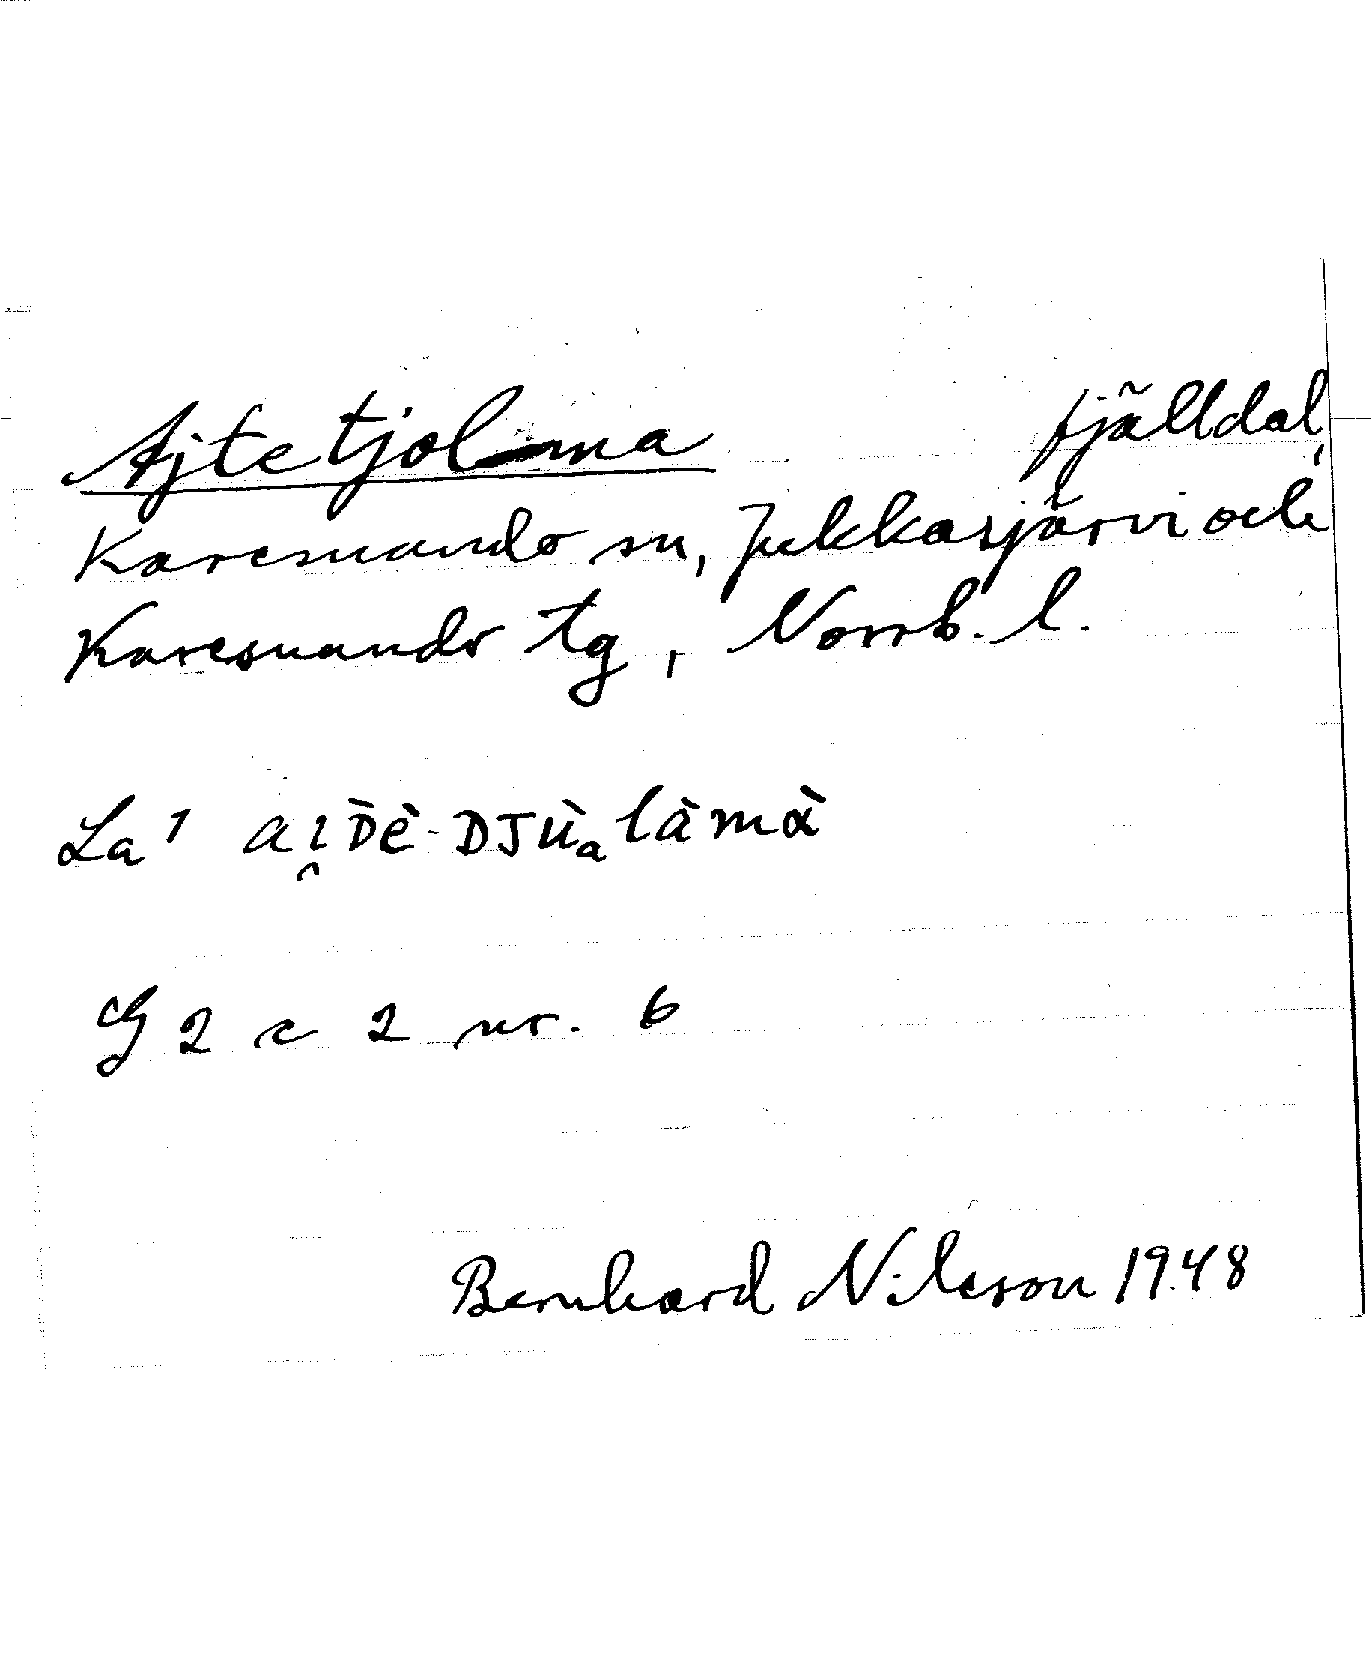 Ajtetjolma fjälldal,
Karesuando sn, Jukkasjärvi och
Karesuando tg, Norrb. l.
La¹ ai̯ᴅ̀è-ᴅᴊùₐlàmà
G 2 c 2 nr. 6
Bernhard Nilsson 1948